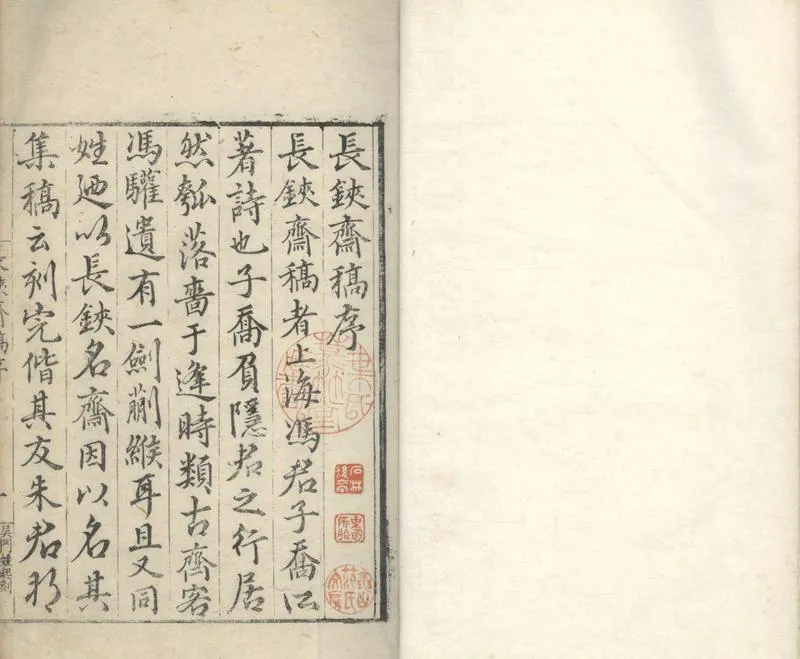 長鋏齋稿序
長鋏齋稿者上海馮君子喬所
著詩也子喬負隱君之行居
然瓠落嗇于逢時類古齊客
馮驩遺有一劍蒯緱耳且又同
姓廼以長鋏名齋因以名其
集稿云刻完偕其友朱君邦
長鋏齋稿序
一
石林後裔